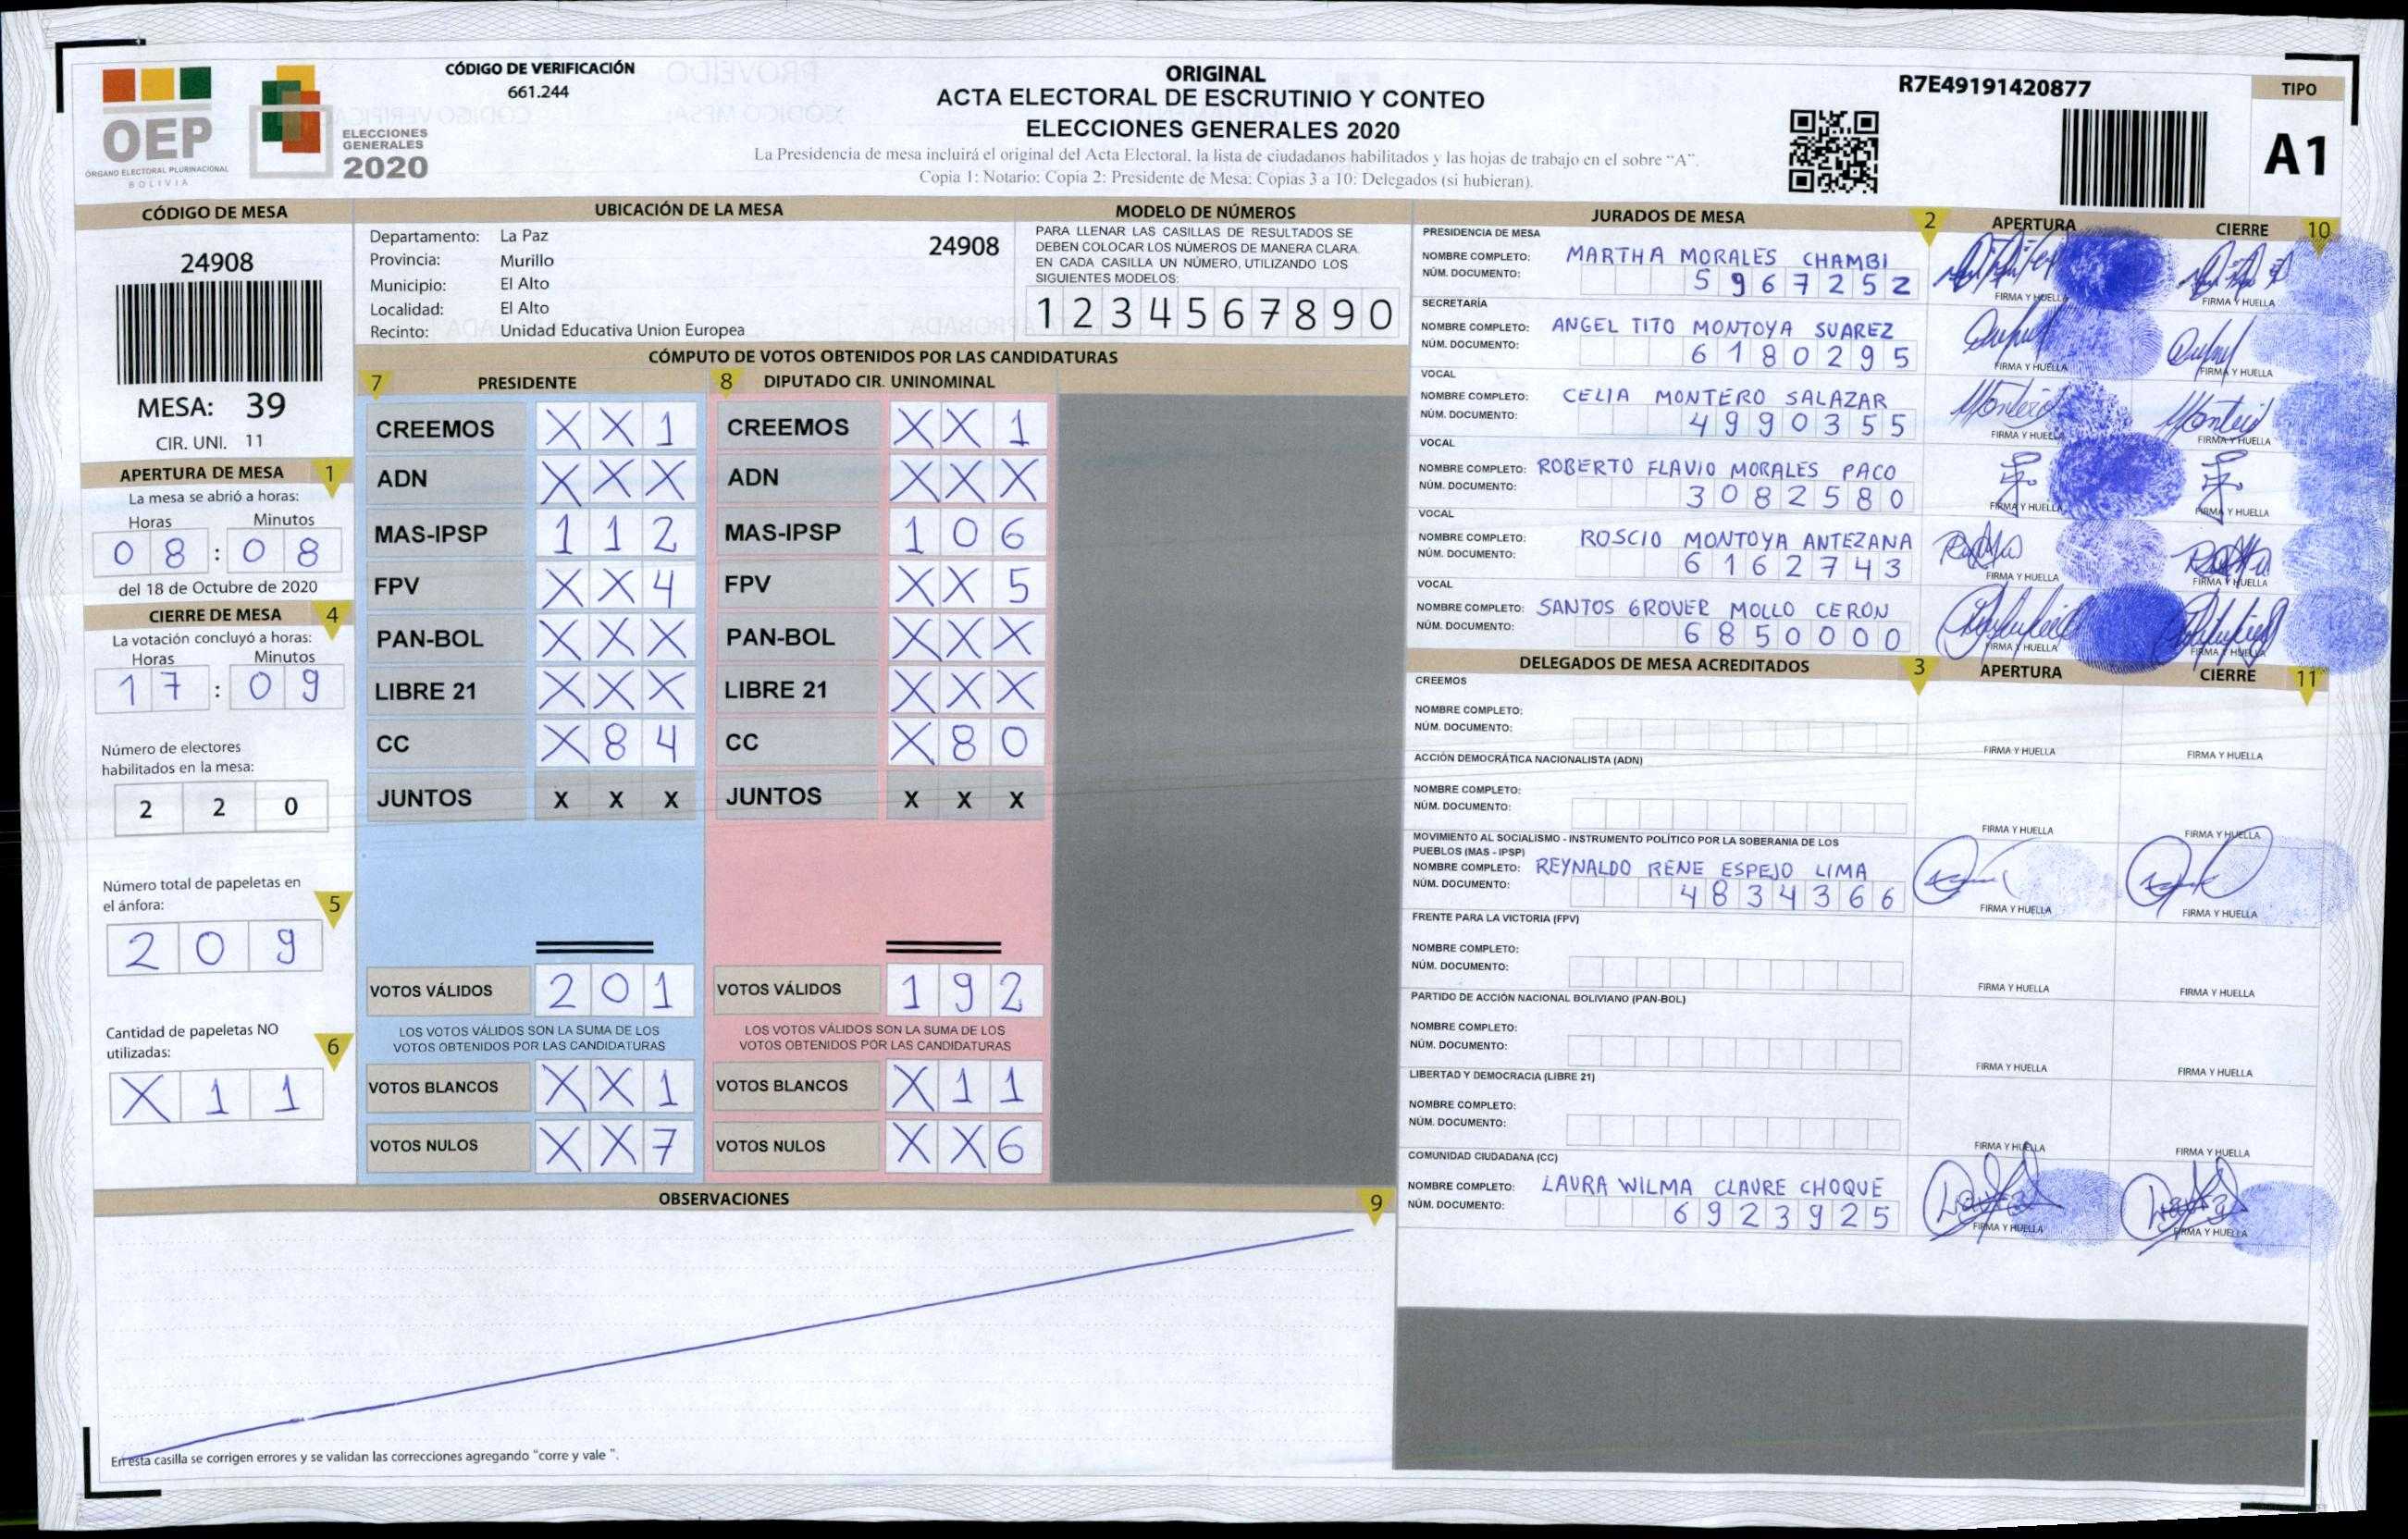 OEP
ÓRGANO ELECTORAL PLURINACIONAL
BOLIVIA
ELECCIONES
GENERALES
2020
CÓDIGO DE VERIFICACIÓN
661.244
ORIGINAL
ACTA ELECTORAL DE ESCRUTINIO Y CONTEO
ELECCIONES GENERALES 2020
La Presidencia de mesa incluirá el original del Acta Electoral, la lista de ciudadanos habilitados y las hojas de trabajo en el sobre "A".
Copia 1: Notario: Copia 2: Presidente de Mesa: Copias 3 a 10: Delegados (si hubieran).
R7E49191420877
TIPO
A1
CÓDIGO DE MESA
24908
MESA: 39
CIR. UNI. 11
APERTURA DE MESA 1
La mesa se abrió a horas:
Horas Minutos
0 8 : 0 8
del 18 de Octubre de 2020
CIERRE DE MESA 4
La votación concluyó a horas:
Horas Minutos
1 7 : 0 9
Número de electores
habilitados en la mesa:
2 2 0
Número total de papeletas en
el ánfora: 5
2 0 9
Cantidad de papeletas NO
utilizadas: 6
X 1 1
UBICACIÓN DE LA MESA
Departamento: La Paz
24908
Provincia: Murillo
Municipio: El Alto
Localidad: El Alto
Recinto: Unidad Educativa Union Europea
MODELO DE NÚMEROS
PARA LLENAR LAS CASILLAS DE RESULTADOS SE
DEBEN COLOCAR LOS NÚMEROS DE MANERA CLARA.
EN CADA CASILLA UN NÚMERO, UTILIZANDO LOS
SIGUIENTES MODELOS:
1 2 3 4 5 6 7 8 9 0
CÓMPUTO DE VOTOS OBTENIDOS POR LAS CANDIDATURAS
7 PRESIDENTE 8 DIPUTADO CIR. UNINOMINAL
CREEMOS X X 1 CREEMOS X X 1
ADN X X X ADN X X X
MAS-IPSP 1 1 2 MAS-IPSP 1 0 6
FPV X X 4 FPV X X 5
PAN-BOL X X X PAN-BOL X X X
LIBRE 21 X X X LIBRE 21 X X X
CC X 8 4 CC X 8 0
JUNTOS X X X JUNTOS X X X
VOTOS VÁLIDOS 2 0 1 VOTOS VÁLIDOS 1 9 2
LOS VOTOS VÁLIDOS SON LA SUMA DE LOS LOS VOTOS VÁLIDOS SON LA SUMA DE LOS
VOTOS OBTENIDOS POR LAS CANDIDATURAS VOTOS OBTENIDOS POR LAS CANDIDATURAS
VOTOS BLANCOS X X 1 VOTOS BLANCOS X 1 1
VOTOS NULOS X X 7 VOTOS NULOS X X 6
OBSERVACIONES 9
En esta casilla se corrigen errores y se validan las correcciones agregando "corre y vale ".
JURADOS DE MESA 2 APERTURA CIERRE 10
PRESIDENCIA DE MESA
NOMBRE COMPLETO: MARTHA MORALES CHAMBI
NÚM. DOCUMENTO: 5 9 6 7 2 5 2
FIRMA Y HUELLA FIRMA Y HUELLA
SECRETARÍA
NOMBRE COMPLETO: ANGEL TITO MONTOYA SUAREZ
NÚM. DOCUMENTO: 6 1 8 0 2 9 5
FIRMA Y HUELLA FIRMA Y HUELLA
VOCAL
NOMBRE COMPLETO: CELIA MONTERO SALAZAR
NÚM. DOCUMENTO: 4 9 9 0 3 5 5
FIRMA Y HUELLA FIRMA Y HUELLA
VOCAL
NOMBRE COMPLETO: ROBERTO FLAVIO MORALES PACO
NÚM. DOCUMENTO: 3 0 8 2 5 8 0
FIRMA Y HUELLA FIRMA Y HUELLA
VOCAL
NOMBRE COMPLETO: ROSCIO MONTOYA ANTEZANA
NÚM. DOCUMENTO: 6 1 6 2 7 4 3
FIRMA Y HUELLA FIRMA Y HUELLA
VOCAL
NOMBRE COMPLETO: SANTOS GROVER MOLLO CERON
NÚM. DOCUMENTO: 6 8 5 0 0 0 0
FIRMA Y HUELLA FIRMA Y HUELLA
DELEGADOS DE MESA ACREDITADOS 3 APERTURA CIERRE 11
CREEMOS
NOMBRE COMPLETO:
NÚM. DOCUMENTO:
FIRMA Y HUELLA FIRMA Y HUELLA
ACCIÓN DEMOCRÁTICA NACIONALISTA (ADN)
NOMBRE COMPLETO:
NÚM. DOCUMENTO:
FIRMA Y HUELLA FIRMA Y HUELLA
MOVIMIENTO AL SOCIALISMO - INSTRUMENTO POLÍTICO POR LA SOBERANIA DE LOS
PUEBLOS (MAS - IPSP)
NOMBRE COMPLETO: REYNALDO RENE ESPEJO LIMA
NÚM. DOCUMENTO: 4 8 3 4 3 6 6
FIRMA Y HUELLA FIRMA Y HUELLA
FRENTE PARA LA VICTORIA (FPV)
NOMBRE COMPLETO:
NÚM. DOCUMENTO:
FIRMA Y HUELLA FIRMA Y HUELLA
PARTIDO DE ACCIÓN NACIONAL BOLIVIANO (PAN-BOL)
NOMBRE COMPLETO:
NÚM. DOCUMENTO:
FIRMA Y HUELLA FIRMA Y HUELLA
LIBERTAD Y DEMOCRACIA (LIBRE 21)
NOMBRE COMPLETO:
NÚM. DOCUMENTO:
FIRMA Y HUELLA FIRMA Y HUELLA
COMUNIDAD CIUDADANA (CC)
NOMBRE COMPLETO: LAURA WILMA CLAURE CHOQUE
NÚM. DOCUMENTO: 6 9 2 3 9 2 5
FIRMA Y HUELLA FIRMA Y HUELLA